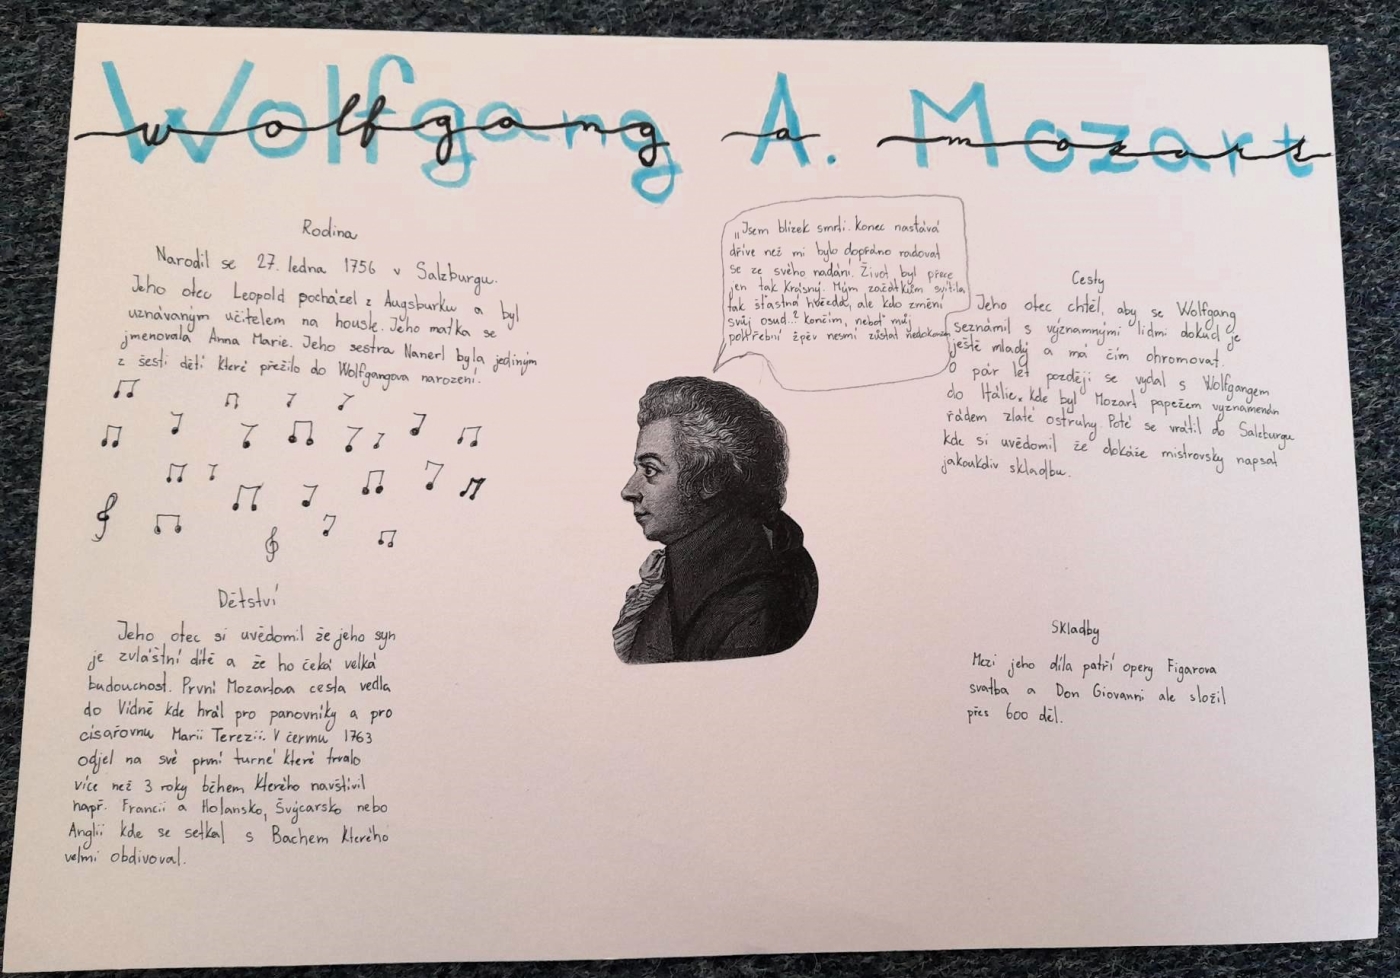 Wolfgang A. Mozart
wolfgang a mozart
Rodina
Narodil se 27. ledna 1756 v Salzburgu.
Jeho otec Leopold pocházel z Augsburku a byl
uznávaným učitelem na housle. Jeho matka se
jmenovala Anna Marie. Jeho sestra Nanerl byla jediným
z šesti dětí které přežilo do Wolfgangova narození.
Dětství
Jeho otec si uvědomil že jeho syn
je zvláštní dítě a že ho čeká velká
budoucnost. První Mozartova cesta vedla
do Vídně kde hrál pro panovníky a pro
císařovnu Marii Terezii. V červnu 1763
odjel na své první turné které trvalo
více než 3 roky během kterého navštívil
např. Francii a Holansko, Švýcarsko nebo
Anglii kde se setkal s Bachem kterého
velmi obdivoval.
„Jsem blízek smrti. Konec nastává
dříve než mi bylo dopřáno radovat
se ze svého nadání. Život byl přece
jen tak krásný. Mým začátkům svítila
tak šťastná hvězda, ale kdo změní
svůj osud..? Končím, neboť můj
pohřební zpěv nesmí zůstat nedokončen
Cesty
Jeho otec chtěl, aby se Wolfgang
seznámil s významnými lidmi dokud je
ještě mladý a má čím ohromovat.
O pár let později se vydal s Wolfgangem
do Itálie, kde byl Mozart papežem vyznamenán
řádem zlaté ostruhy. Poté se vrátil do Salzburgu
kde si uvědomil že dokáže mistrovsky napsat
jakoukoliv skladbu.
Skladby
Mezi jeho díla patří opery Figarova
svatba a Don Giovanni ale složil
přes 600 děl.